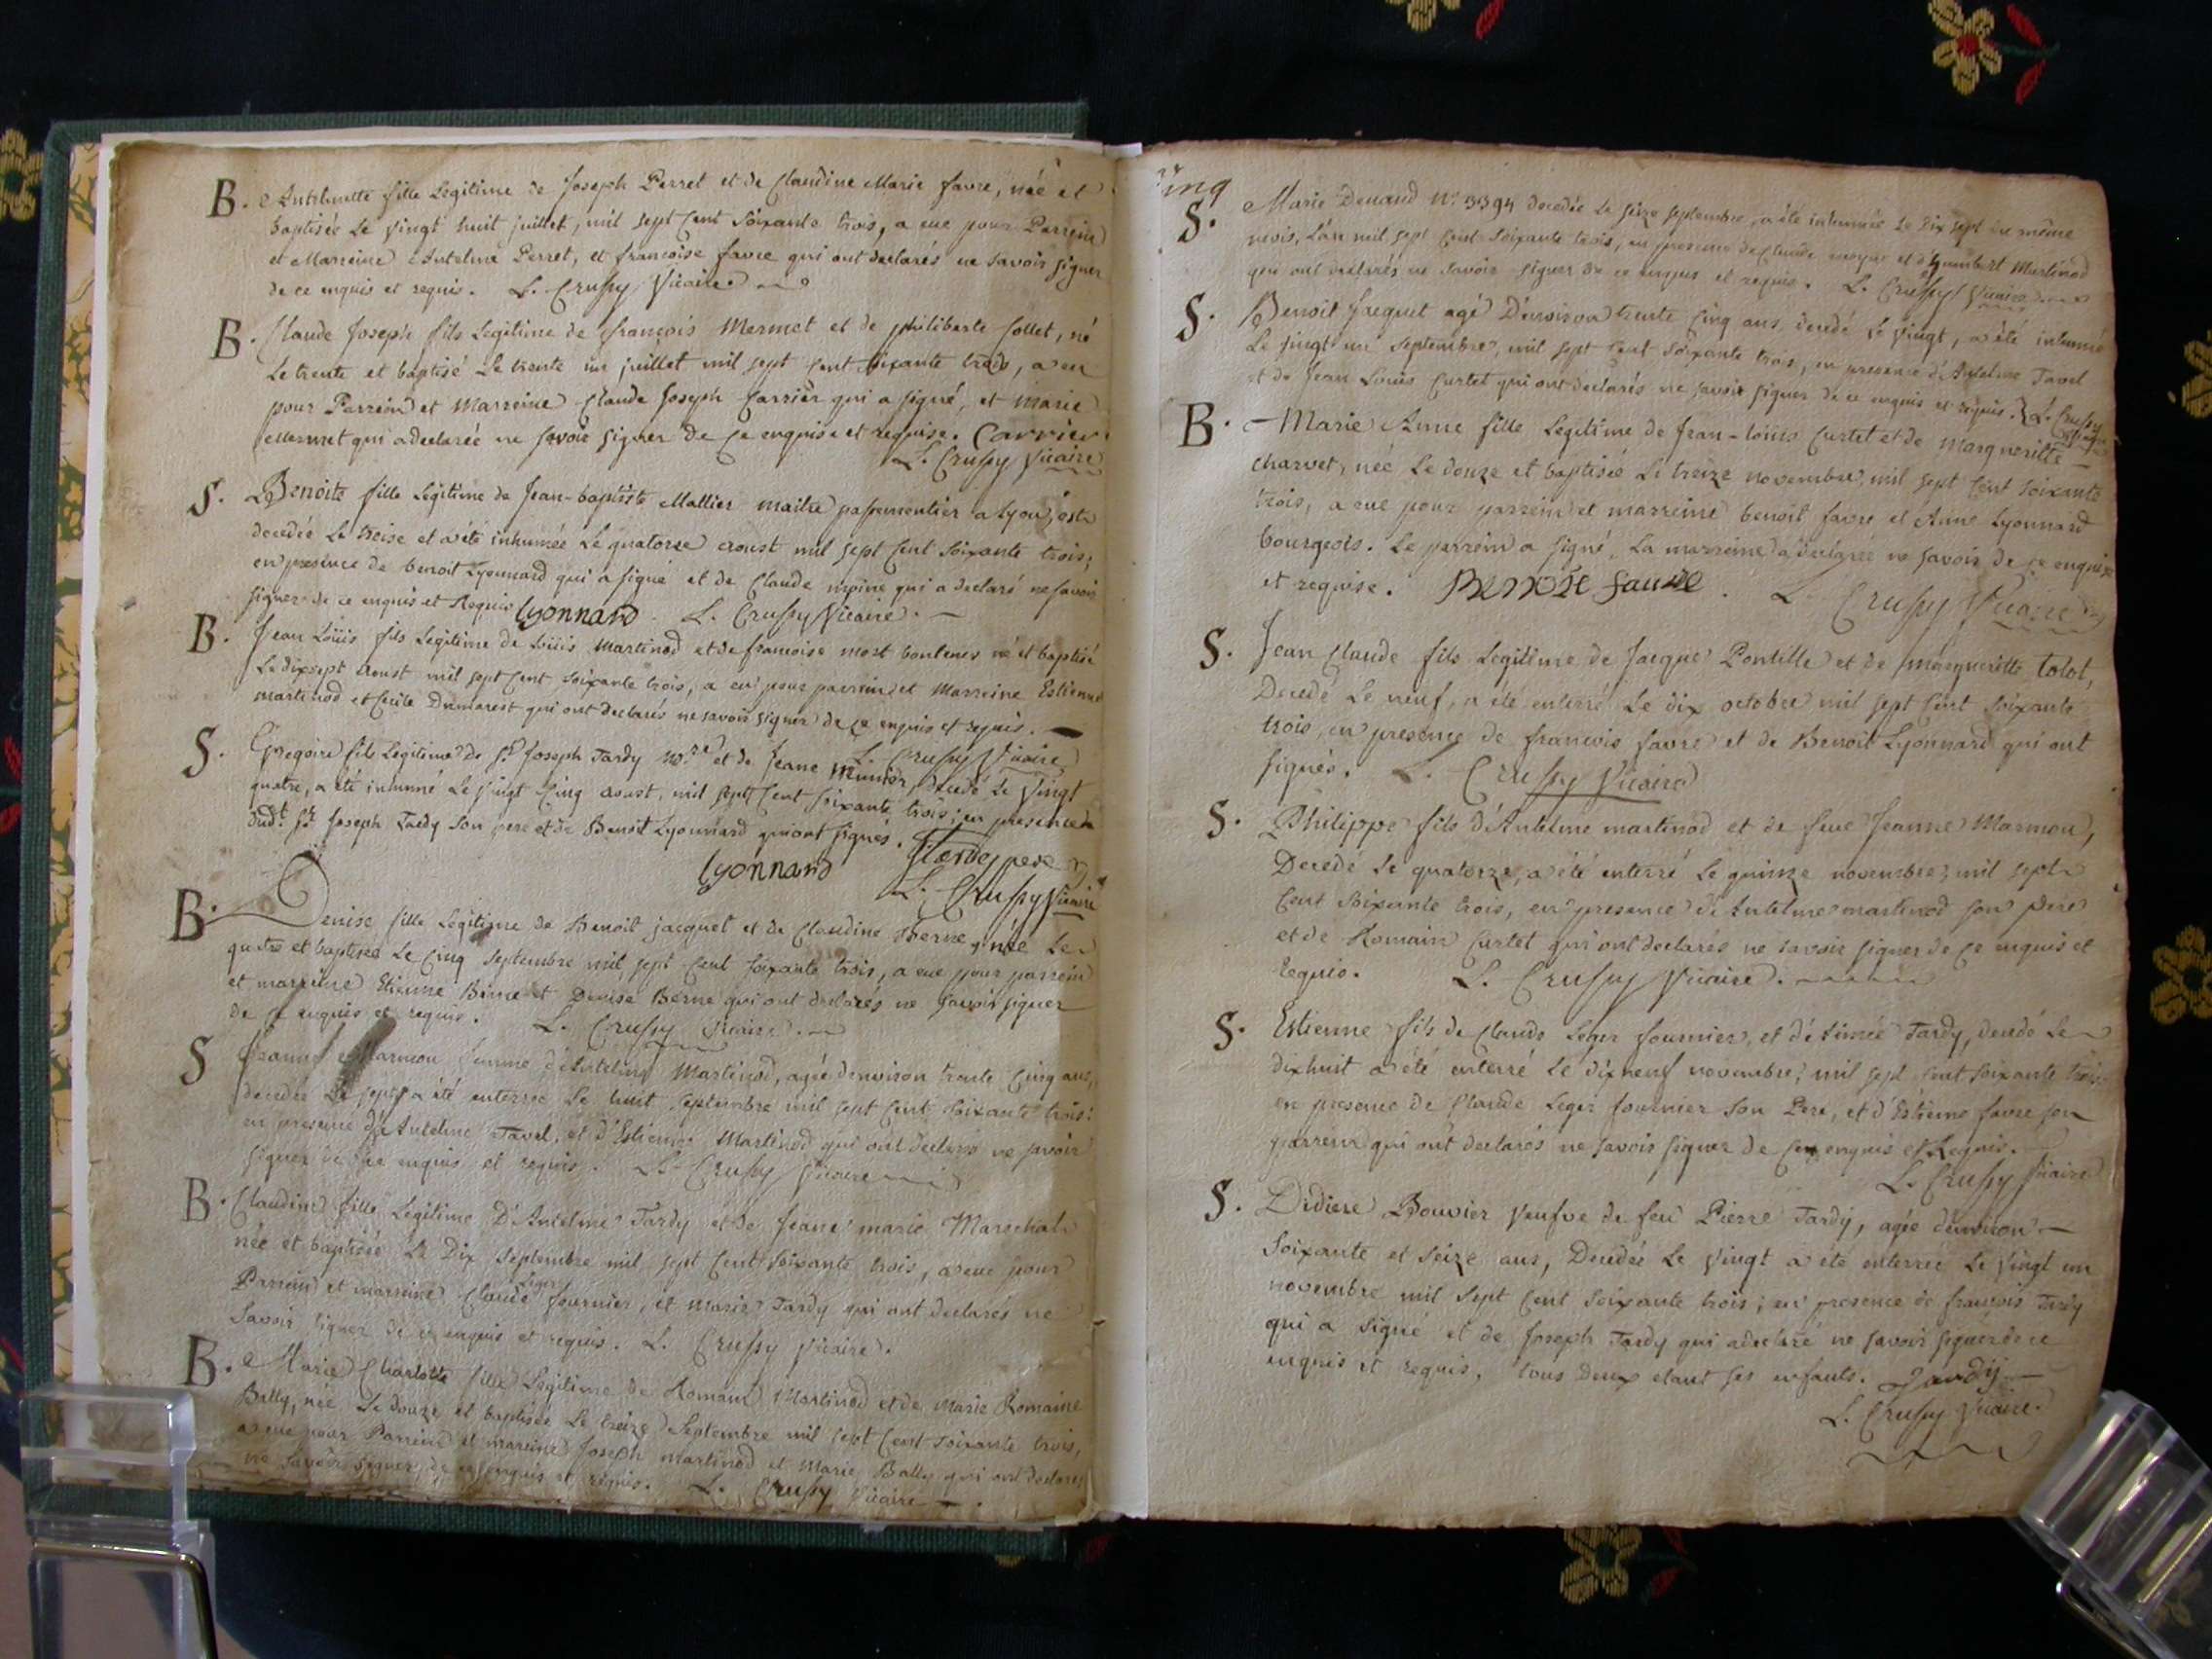 B. Anthelmette fille Legitime de Joseph Perret et de Claudine Marie favre, née et
baptisée Le vingt huit juillet, mil sept Cent Soixante trois, a eue pour Parrein
et Marreine Antelme Perret, et francoise favre qui ont declarés ne savoir signer
de ce enquis et requis. L. Crussy Vicaire
B. Claude Joseph fils Legitime de françois Mermet et de philiberte Collet, né
Le trente et baptisé Le trente un juillet mil sept Cent soixante trois, a eu
pour Parrein et Marreine Claude Joseph Carrier qui a signé, et marie
Mermet qui a declarée ne savoir signer de ce enquise et requise. Carrier
L. Crussy Vicaire
S. Benoite fille Legitime de Jean-baptiste Mallier maitre passementier a Lyon, est
decedée Le treise et a été inhumée Le quatorse aoust mil sept Cent Soixante trois,
en presence de benoit Lyonnard qui a signé et de Claude moine qui a declaré ne savoir
signer de ce enquis et Requis Lyonnard. L. Crussy Vicaire.
B. Jean Loüis fils Legitime de Loüis Martinod et de francoise mort né et baptisé
Le dixsept Aoust mil sept Cent soixante trois, a eu pour parrein et Marreine Estienne
martinod et Cecile Dumarest qui ont declarés ne savoir signer de ce enquis et requis.
L. Crussy Vicaire
S. Gregoire fils Legitime de Sr. Joseph Tardy Nore et de Jeane Munier, decedé Le vingt
quatre, a été inhumé Le vingt Cinq aoust, mil sept Cent soixante trois; en presence
dudt. Sr. Joseph Tardy son pere et de Benoit Lyonnard qui ont signés. Tardy pere
Lyonnard
L. Crussy Vicaire
B. Denise fille Legitime de Benoit jacquet et de Claudine Berne, née Le
quatre et baptisée Le Cinq septembre mil sept Cent soixante trois, a eue pour parrein
et marreine Etienne Berne et Denise Berne qui ont declarés ne savoir signer
de ce enquis et requis. L. Crussy Vicaire.
S Jeanne Marmou femme d'Antelme Martinod, agée d'environ trente Cinq ans,
decedée Le sept, a été enterrée Le huit septembre mil sept Cent soixante trois:
en presence d'Antelme Tavel, et d'Estienne Martinod qui ont declarés ne savoir
signer de ce enquis et requis. L. Crussy Vicaire
B. Claudine fille Legitime D'Antelme Tardy et de Jeane marie Marechal
née et baptisée Le Dix septembre mil sept Cent soixante trois, a eue pour
Parrein et marreine Claude Léger fournier, et marie Tardy qui ont declarés ne
Savoir signer de ce enquis et requis. L. Crussy Vicaire.
B. Marie Charlotte fille Legitime de Romain Martinod et de Marie Romaine
Bally, née Le douze et baptisée Le treize Septembre mil sept Cent soixante trois,
a eue pour Parrein et marreine Joseph martinod et Marie Bally qui ont declarés
ne savoir signer, de ce enquis et requis. L. Crussy Vicaire.
S. Marie Devaud No. 3394 decedée Le seize septembre, a été inhumée Le dix sept du même
mois, L'an mil sept Cent soixante trois, en presence de Claude et d'humbert Martinod
qui ont declarés ne savoir signer de ce enquis et requis. L. Crussy Vicaire
S. Benoit Jacquet agé D'environ trente Cinq ans, decedé Le vingt, a été inhumé
Le vingt un septembre, mil sept Cent soixante trois, en presence d'Antelme Tavel
et de Jean Louis Curtet qui ont declarés ne savoir signer de ce enquis et requis. L. Crussy
B. Marie Anne fille Legitime de Jean-loüis Curtet et de Margueritte
Charvet, née Le douze et baptisée Le treize novembre, mil sept Cent soixante
trois, a eue pour parrein et marreine benoit favre et Anne Lyonnard
bourgeois. Le parrein a signé, La marreine a declarée ne savoir de ce enquise
et requise. Benoit faure. L. Crussy Vicaire
S. Jean Claude fils Legitime de Jacque Pontille et de margueritte tolot,
Decedé Le neuf, a été enterré Le dix octobre mil sept Cent soixante
trois, en presence de francois favre et de Benoit Lyonnard qui ont
signés. L. Crussy Vicaire
S. Philippe fils d'Antelme martinod et de feue Jeanne Marmou,
Decedé Le quatorze, a été enterré Le quinze novembre, mil sept
Cent soixante trois, en presence d'Antelme martinod son Pere
et de Romain Curtet qui ont declarés ne savoir signer de ce enquis et
Requis. L. Crussy Vicaire.
S. Estienne fils de Claude Leger fournier, et d'Aimée Tardy, decedé Le
dixhuit a été enterré Le dix neuf novembre, mil sept Cent soixante trois
en presence de Claude Leger fournier son Pere, et d'Estienne favre son
parrein qui ont declarés ne savoir signer de ce enquis et Requis.
L. Crussy Vicaire
S. Didiere Bouvier Veufve de feu Pierre Tardy, agée d'environ
soixante et seize ans, Decedée Le vingt a été enterrée Le vingt un
novembre mil sept Cent soixante trois; en presence de francois Tardy
qui a signé et de Joseph Tardy qui a declaré ne savoir signer de ce
enquis et requis, tous deux etant ses enfants. Tardy
L. Crussy Vicaire.